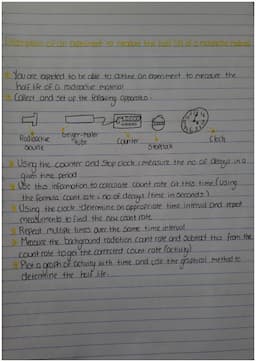 Description of an experiment to measure the half life of a radioactive material
You are expected to be able to outline an experiment to measure the
half life of a radioactive material
Collect and set up the following apparatus:
Radioactive source
Geiger-muller tube
Counter
Stopclock
Clock
Using the counter and stop clock, measure the no of decays in a
given time period
Use this information to calculate count rate at this time (using
the formula count rate = no of decays / time in seconds)
Using the clock determine an appropriate time interval and repeat
measurements to find the new count rate
Repeat multiple times over the same time interval
Measure the background radiation count rate and subtract this from the
count rate to get the corrected count rate (activity)
Plot a graph of activity with time and use the graphical method to
determine the half life.